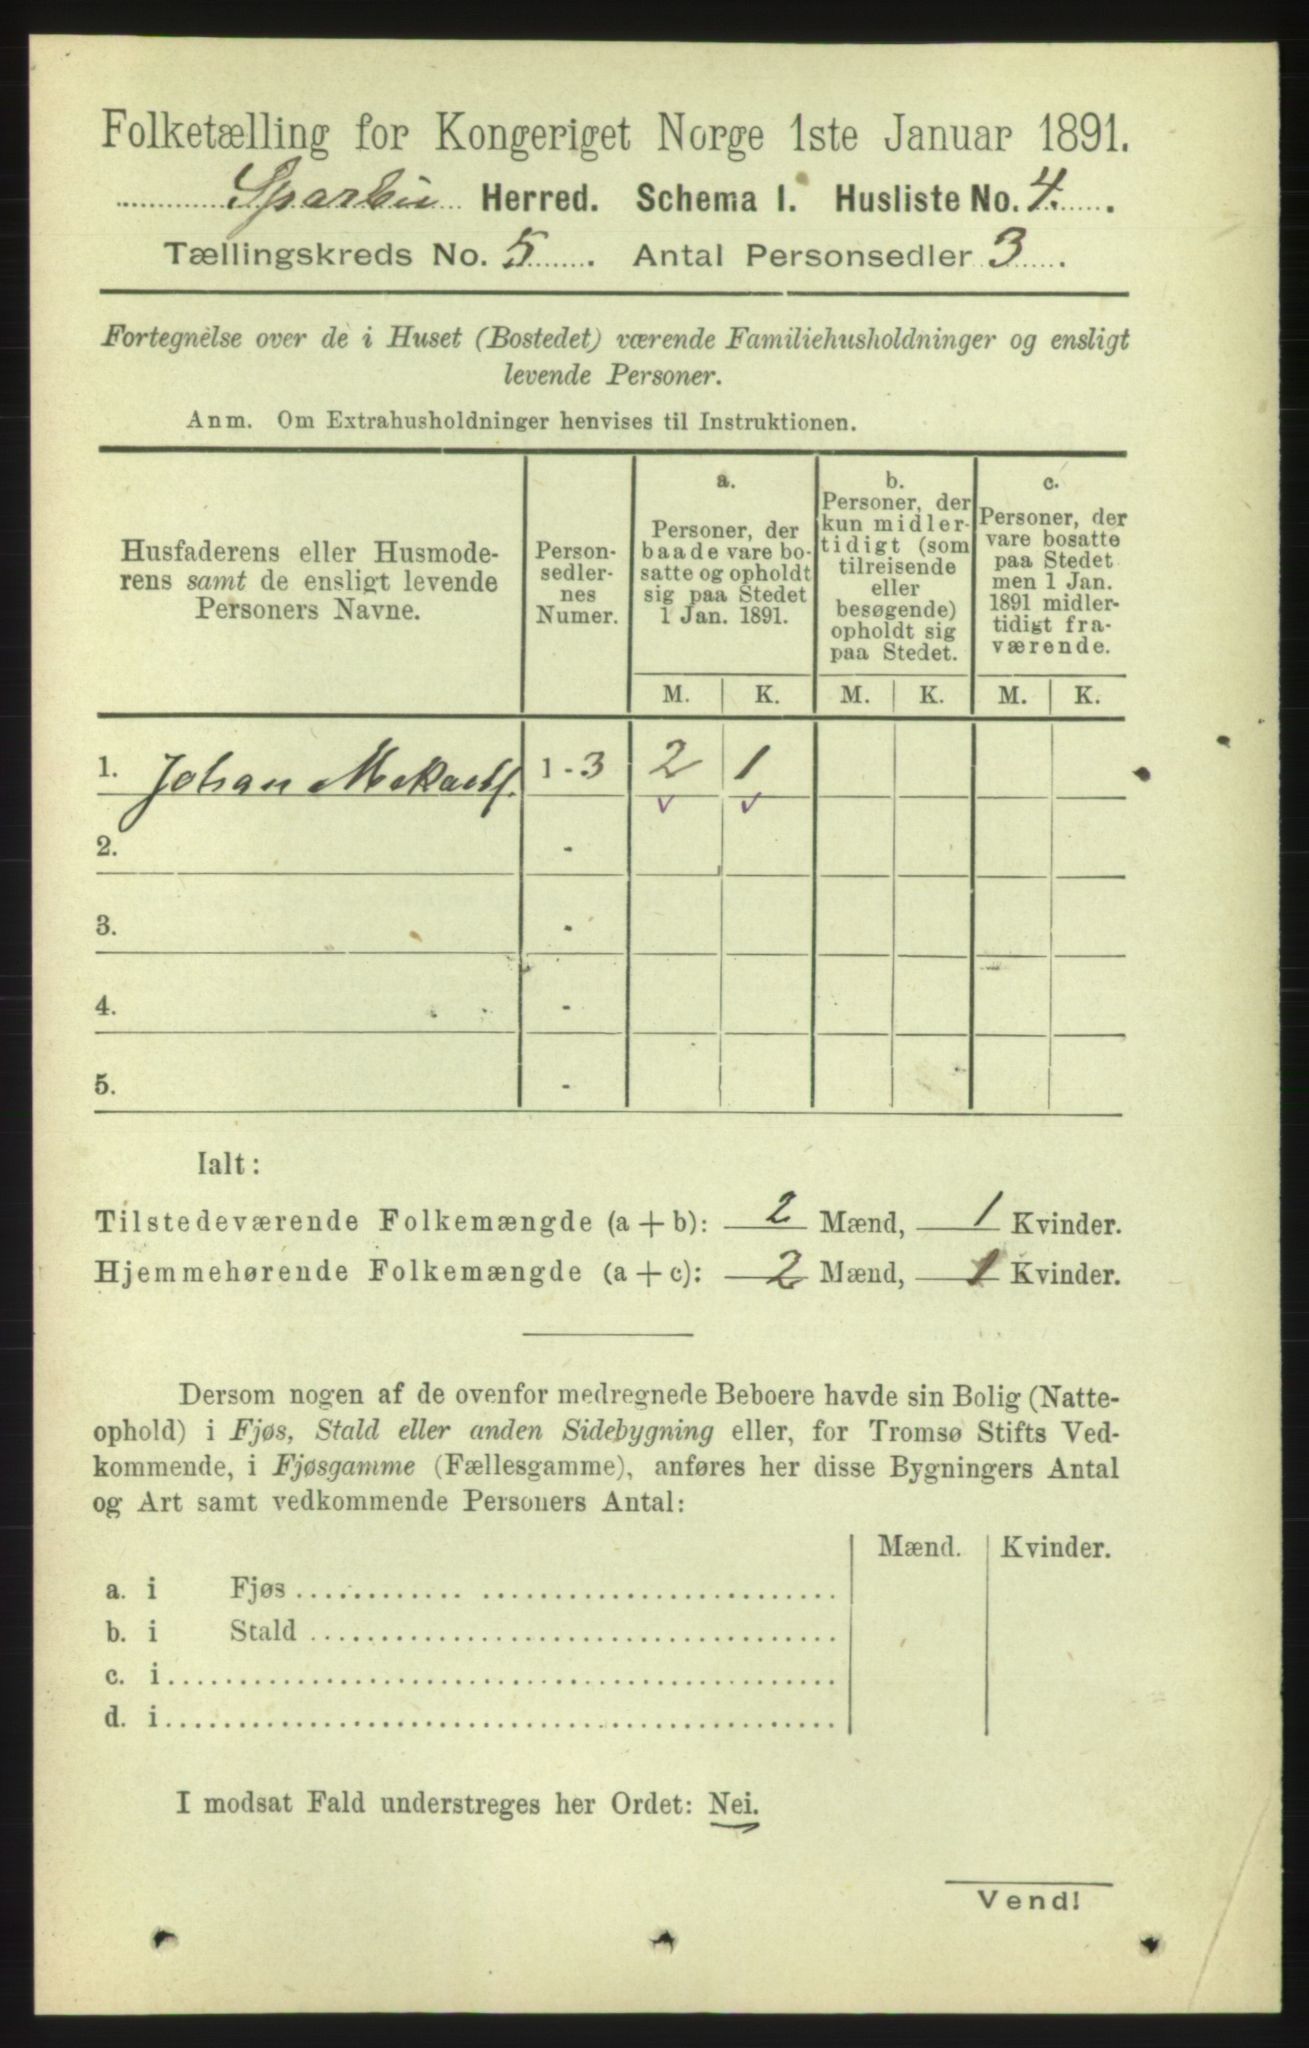 Folketælling for Kongeriget Norge 1ste Januar 1891.
Sparbu Herred. Schema I. Husliste No. 4.
Tællingskreds No. 5. Antal Personsedler 3.
Fortegnelse over de i Huset (Bostedet) værende Familiehusholdninger og ensligt
levende Personer.
Anm. Om Extrahusholdninger henvises til Instruktionen.
Husfaderens eller Husmode-
rens samt de ensligt levende
Personers Navne.
Person-
sedler-
nes
Numer.
a.
Personer, der
baade vare bo-
satte og opholdt
sig paa Stedet
1 Jan. 1891.
b.
Personer, der
kun midler-
tidigt (som
tilreisende
eller
besøgende)
opholdt sig
paa Stedet.
c.
Personer, der
vare bosatte
paa Stedet
men 1 Jan.
1891 midler-
tidigt fra-
værende.
M. K. M. K. M. K.
1. Johan 1-3 2 1
2. -
3. -
4. -
5. -
Ialt:
Tilstedeværende Folkemængde (a + b): 2 Mænd, 1 Kvinder.
Hjemmehørende Folkemængde (a + c): 2 Mænd, 1 Kvinder.
Dersom nogen af de ovenfor medregnede Beboere havde sin Bolig (Natte-
ophold) i Fjøs, Stald eller anden Sidebygning eller, for Tromsø Stifts Ved-
kommende, i Fjøsgamme (Fællesgamme), anføres her disse Bygningers Antal
og Art samt vedkommende Personers Antal:
Mænd. Kvinder.
a. i Fjøs
b. i Stald
c. i
d. i
I modsat Fald understreges her Ordet: Nei.
Vend!